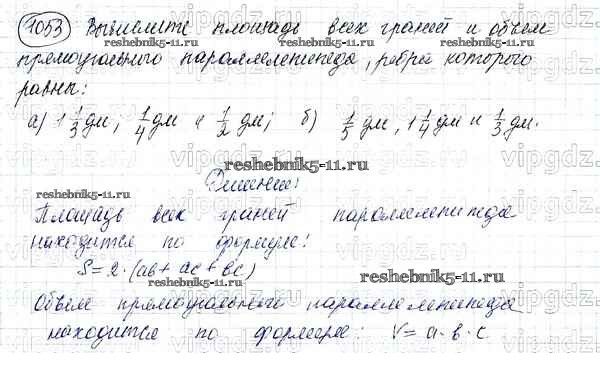 1053 Вычислите площадь всех граней и объем
reshebnik5-11.ru reshebnik5-11.ru
прямоугольного параллелепипеда, ребра которого
равны:
а) 1 1/3 дм; 1/4 дм и 1/2 дм; б) 1/5 дм, 1 1/4 дм и 1/3 дм.
vipgdz. vipgdz. vipgdz. vipgdz.
reshebnik5-11.ru
Решение:
reshebnik5-11.ru
Площадь всех граней параллелепипеда
находится по формуле:
S = 2·(ab + ac + bc)
reshebnik5-11.ru
Объем прямоугольного параллелепипеда
находится по формуле: V = a·b·c